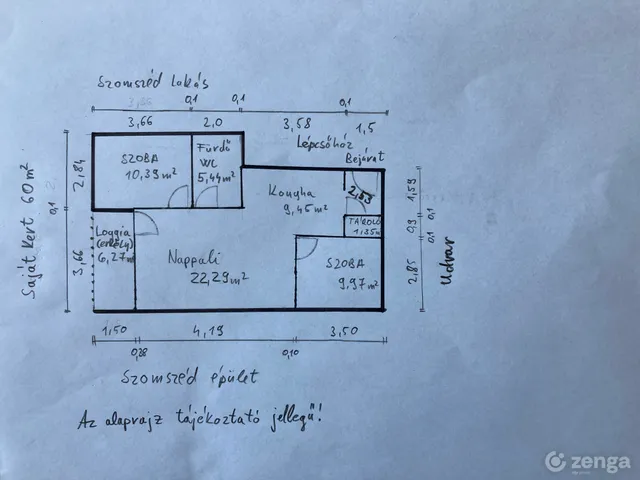 Szomszéd lakás
3,85
0,1
0,1
0,1
3,66
2,0
3,58
1,5
Lépcsőház
Bejárat
Saját kert 60 m²
0,1
2,84
3,66
SZOBA
10,39 m²
Fürdő
WC
5,44 m²
Konyha
9,45 m²
2,53
TÁROLÓ
1,35 m²
Loggia
(erkély)
6,27 m²
Nappali
22,29 m²
SZOBA
9,97 m²
1,59
0,1
0,9
0,1
2,85
Udvar
1,50
4,19
3,50
0,28
0,10
Szomszéd épület
Az alaprajz tájékoztató jellegű!
zenga